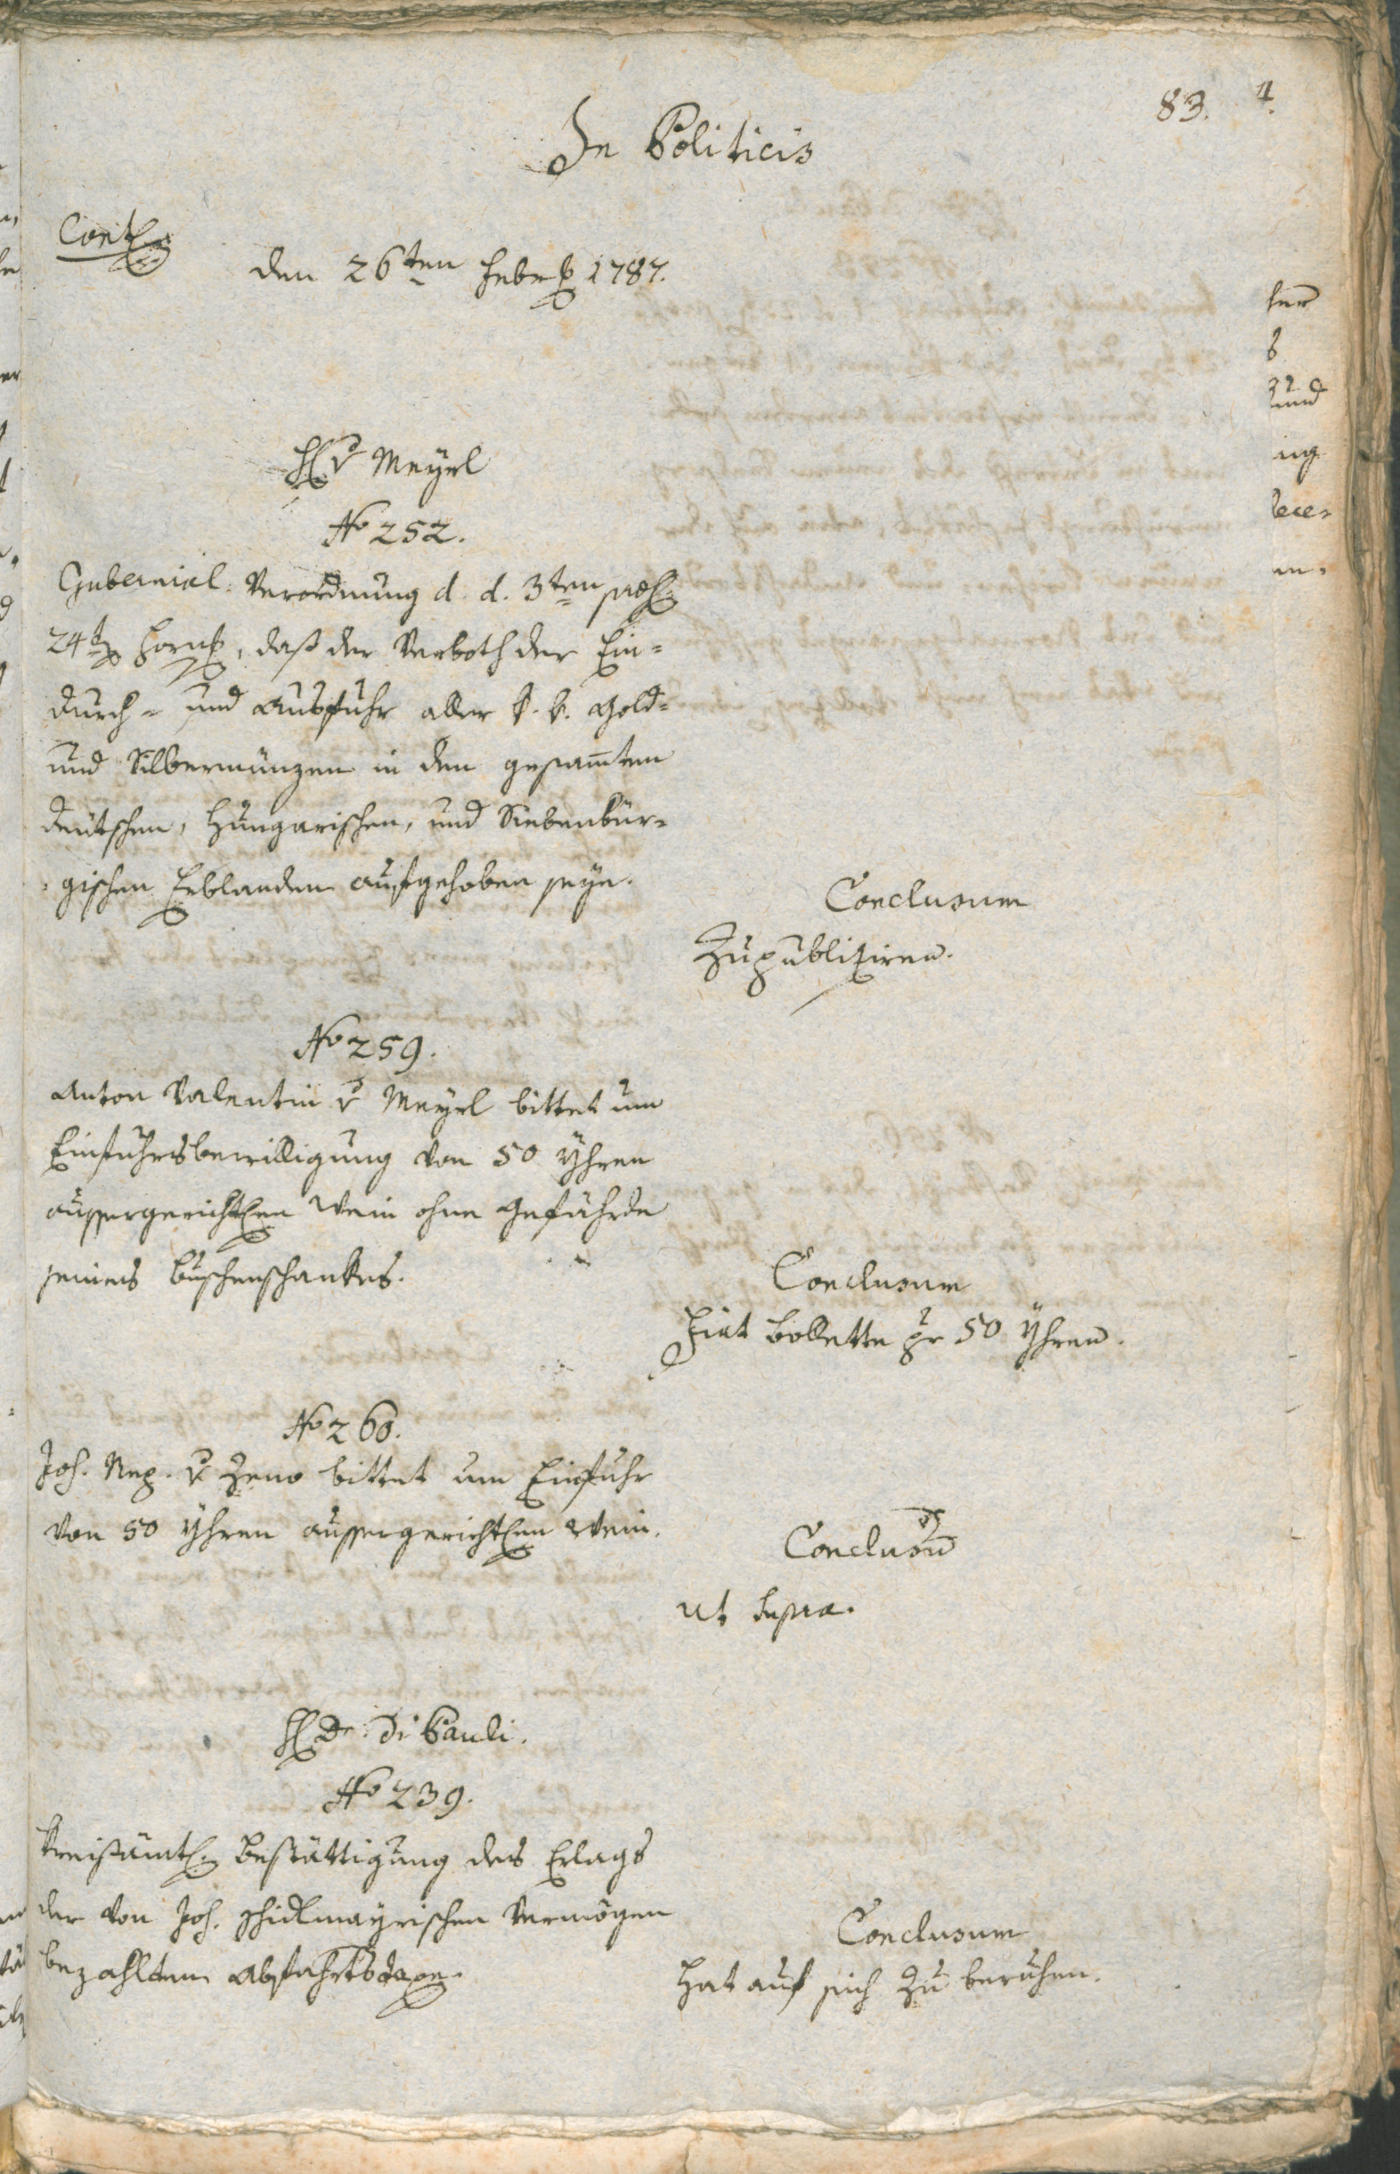 83.
In Politicis
Cont.
den 26ten Febr. 1787.
H. v Meyrl
No 252.
Gubernial. Verordnung d. d. 3ten präs.
24t. Horn., daß der Verboth der Ein-
durch- und Ausfuhr aller k. k. Gold-
und Silbermünzen in den gesam̄ten
deutschen, Hungarischen, und Siebenbür-
gischen Erblanden aufgehoben seye.
Conclusum
Zu publiziren.
No 259.
Anton Valentin v Meyrl bittet um
Einfuhrsbewilligung von 50 Yhren
aussergerichtl.en Wein ohne Gefährde
seines Buschenschankes.
Conclusum
Fiat Bollette pr 50 Yhren.
No 260.
Joh. Nep. v Zeno bittet um Einfuhr
von 50 Yhren aussergerichtl.en Wein.
Conclusū
ut supra.
H. Dr. Di Pauli.
No 239.
Kreißämtl. Bestättigung des Erlags
der von Joh. Schidlmayrischen Vermögen
bezahlten Abfahrtstaxe.
Conclusum
Hat auf sich zu beruhen.